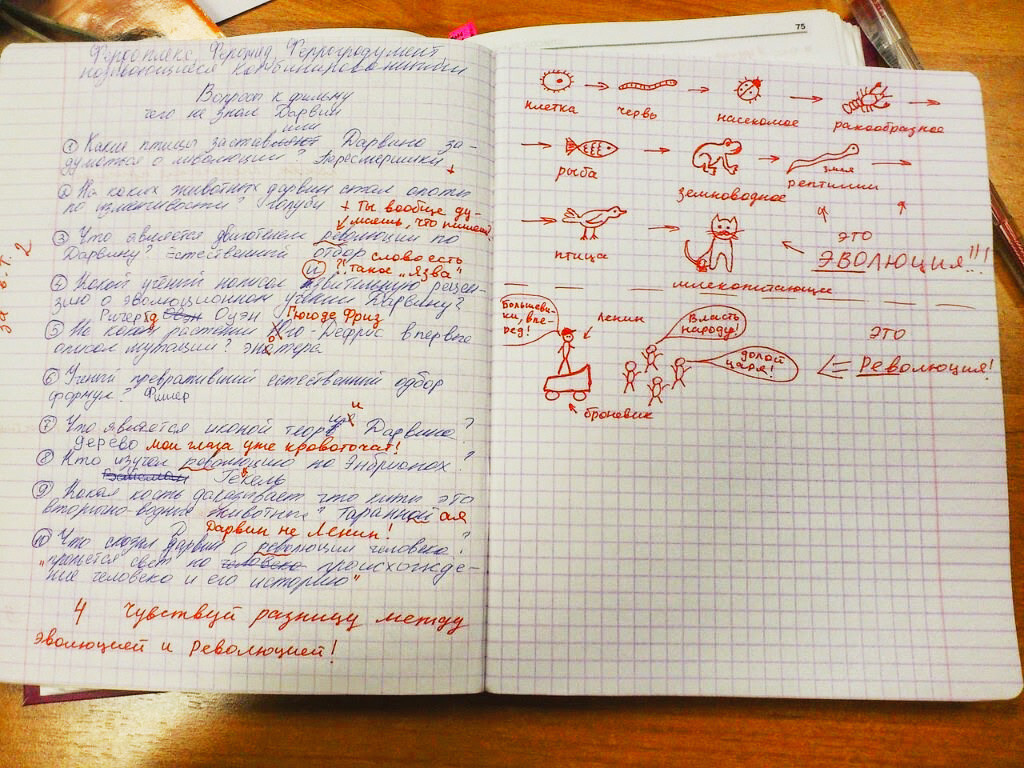 Вопросы к фильму
чего не знал Дарвин
или
① Какие птицы заставляют Дарвина за-
думаться о революции? Пересмешники
+
② На каких животных дарвин ставил опыты
по изменчивости? голуби + ты вообще ду-
маешь, что пишешь
③ Что является двигателем революции по
Дарвину? Естественный отбор слово есть
и ?! такое "язва"
④ Какой учёний написал язвительную рецен-
зию о эволюционном учении Дарвину?
Ричерд Оуэн Гюго де Фриз
⑤ На каком растении Юго-Дефриз впервые
описал мутации? энотера
⑥ Учений превративший естественный одбор
формул? Фишер
и
⑦ Что является иконой теории Дарвина?
дерево мои глаза уже кровоточат!
⑧ Кто изучал революцию по Энбрионах?
Геккель
⑨ Какая кость доказывает что киты это
вторично-водные животные? Таранной ая
Дарвин не Ленин!
⑩ Что сказал дарвин о революции человека?
"прольётся свет на человека происхожде-
ние человека и его историю"
4 Чувствуй разницу между
Эволюцией и Революцией!
за в.т. 2
75
клетка червь насекомое ракообразное
рыба земноводное змея
рептилии
птица млекопитающие
это
ЭВОЛЮЦИЯ!!!
Большеви-
ки, впе-
ред!
Ленин
Власть
народу!
долой
царя!
броневик
это
Революция!